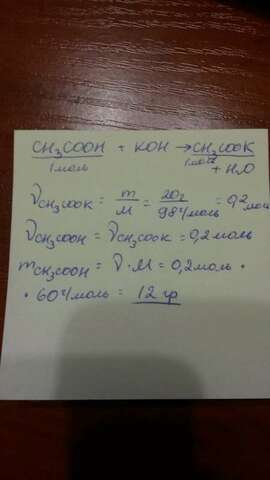 CH₃COOH + KOH → CH₃COOK
1 моль 1 моль + H₂O
ν CH₃COOK = m/M = 20г/98г/моль = 0,2 моль
ν CH₃COOH = ν CH₃COOK = 0,2 моль
m CH₃COOH = ν · M = 0,2 моль ·
· 60г/моль = 12 гр